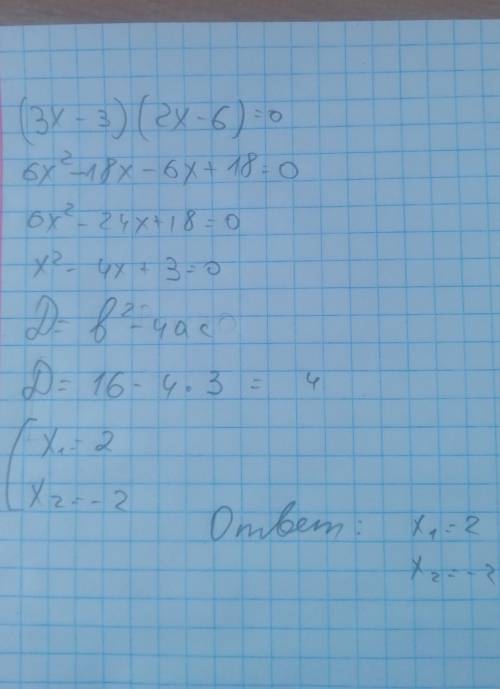 (3x - 3)(2x - 6) = 0
6x² - 18x - 6x + 18 = 0
6x² - 24x + 18 = 0
x² - 4x + 3 = 0
D = b² - 4ac
D = 16 - 4 · 3 = 4
[ x₁ = 2
x₂ = - 2
Ответ: x₁ = 2
x₂ = - 2